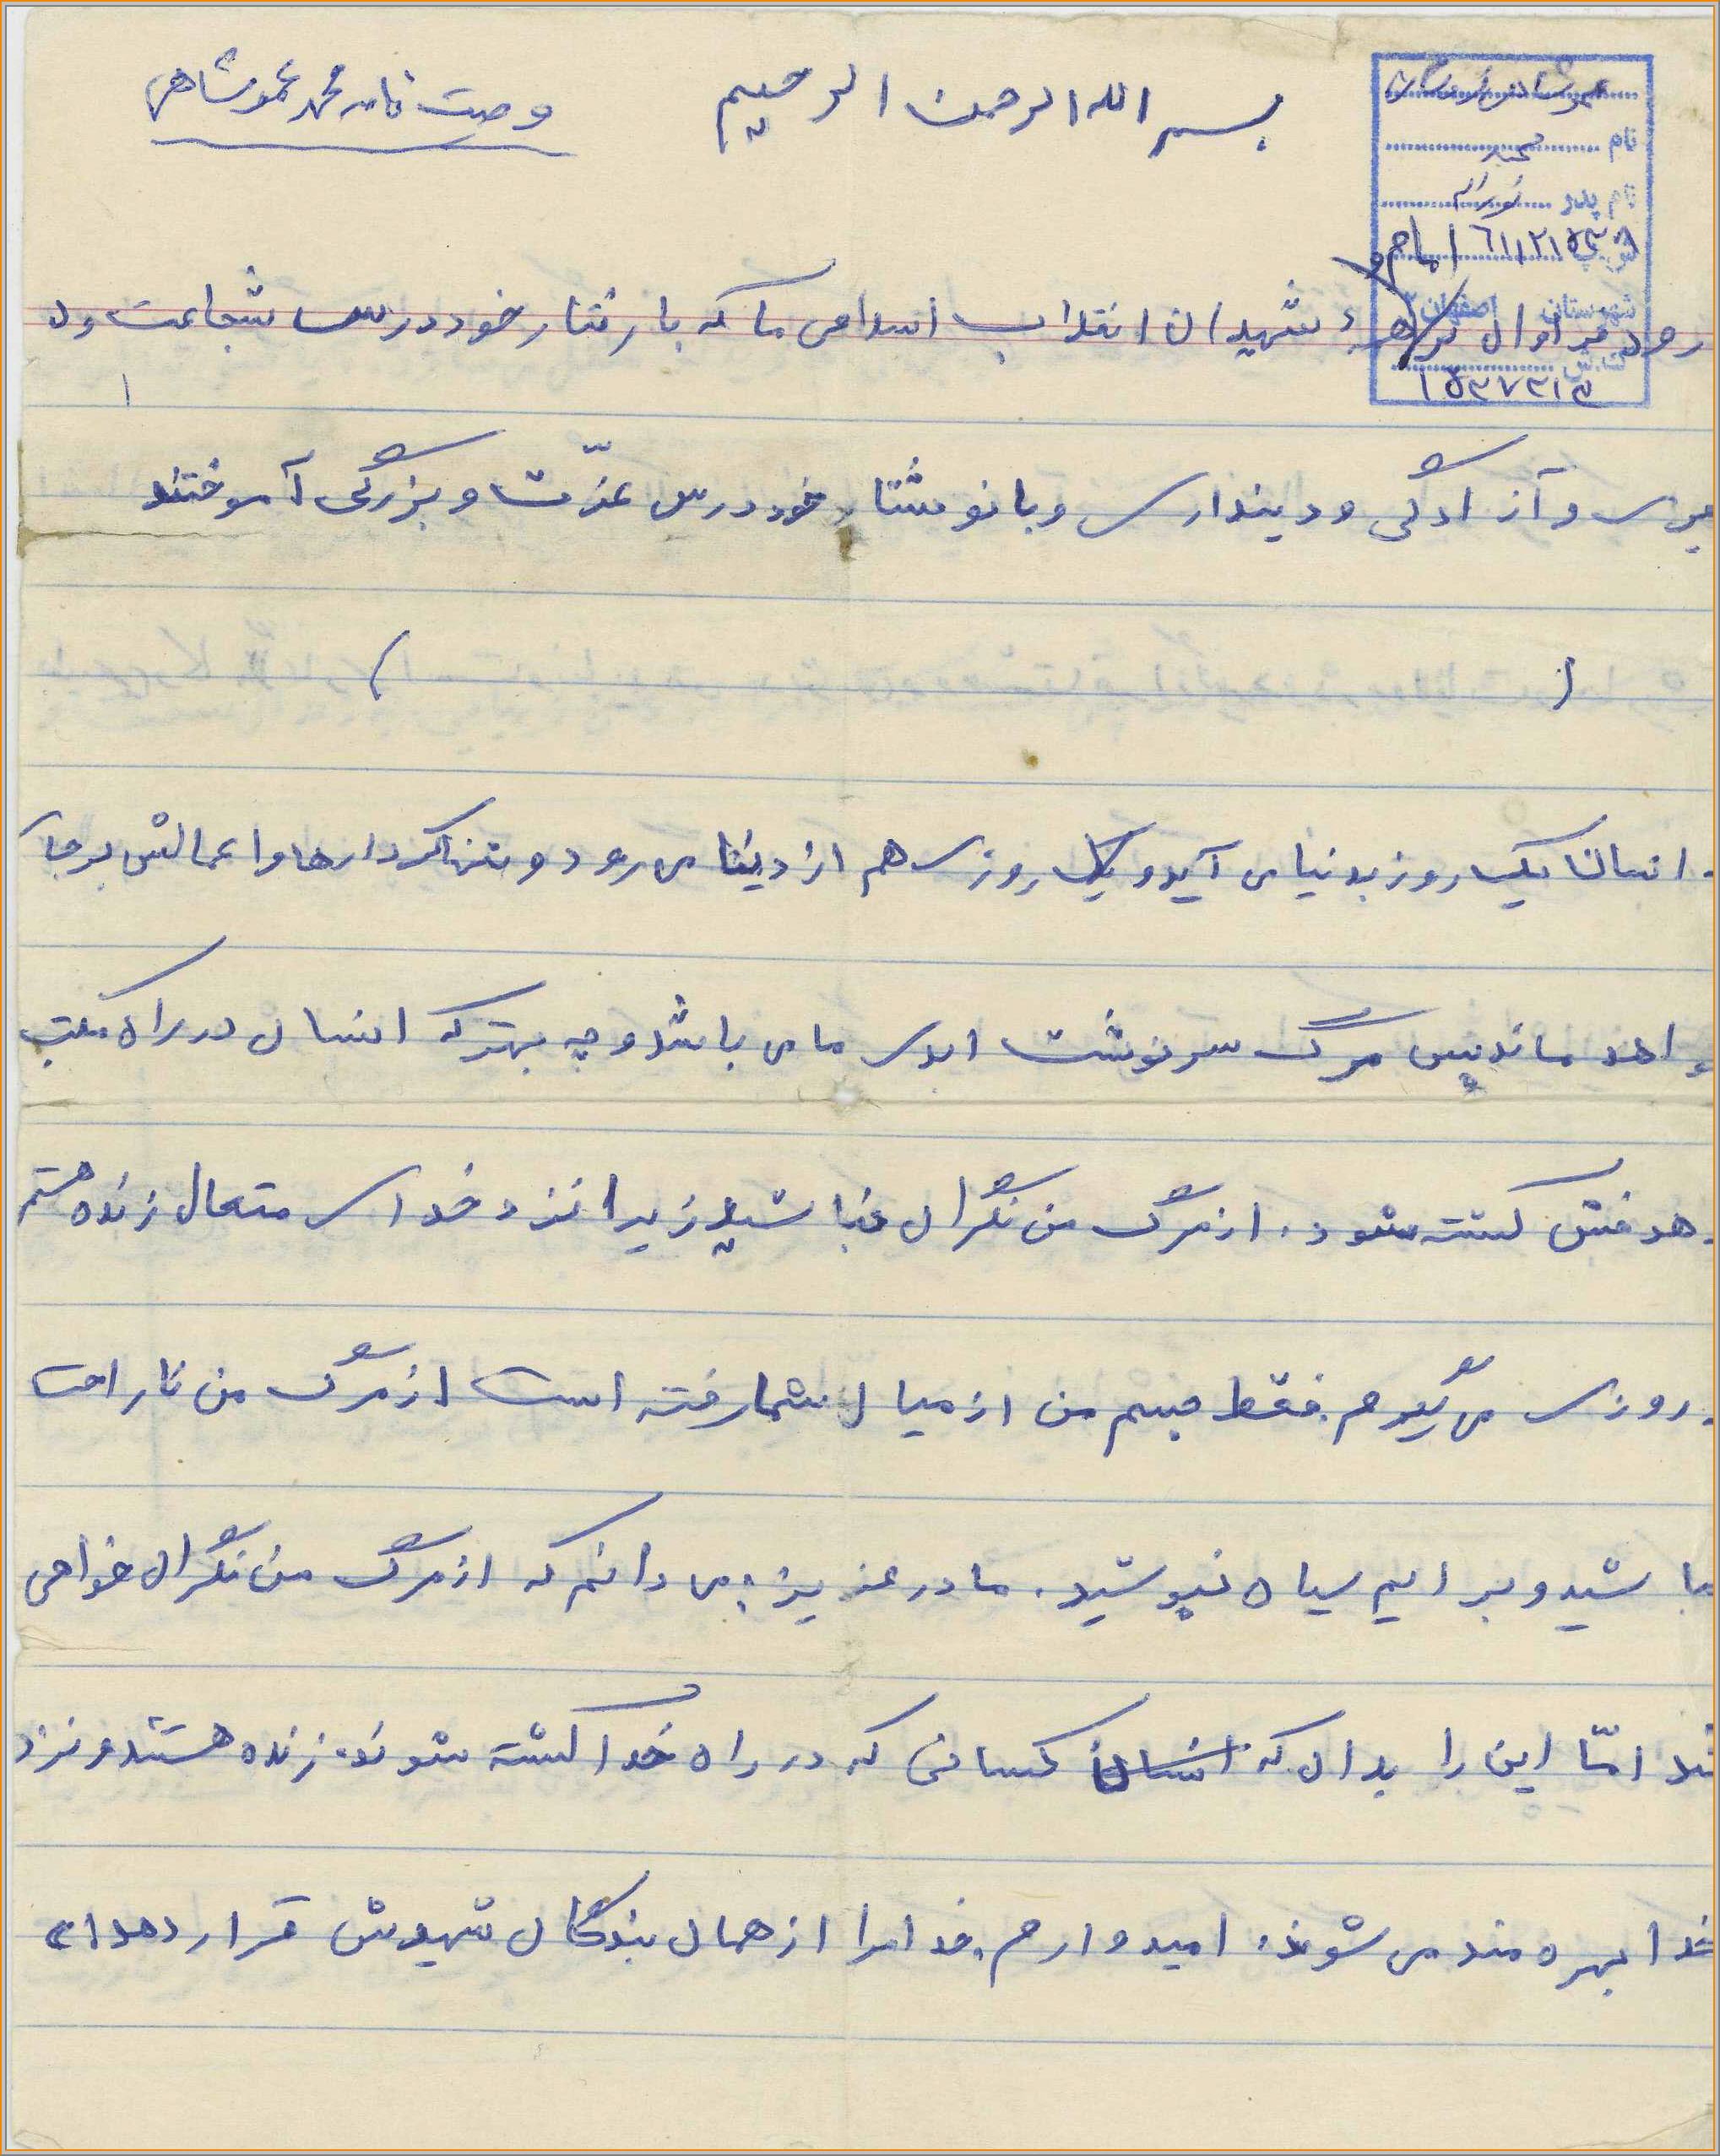 بسم الله الرحمن الرحیم
وصیت نامه محمد عموشاهی
عموشاهی
نام محمد
نام پدر
شهرستان اصفهان
امام و
درود فراوان بر شهیدان انقلاب اسلامی ما که با رفتار خود درس شجاعت و د
لیری و آزادگی و دینداری و با نوشتار خود درس عزّت و بزرگی آموختند
( )
انسان یک روز بدنیا می آید و یک روزی هم از دینا می رود و تنها کردارها و اعمالش برجا
خواهد ماند پس مرگ سرنوشت ابدی ما می باشد و چه بهتر که انسان در راه مکتب
و هدفش کشته شود. از مرگ من نگران نباشید زیرا نزد خدای متعال زنده هستم
و روزی می گیرم. فقط جسم من از میان شما رفته است از مرگ من ناراحت
نباشید و برایم سیاه نپوشید. مادر عزیز: می دانم که از مرگ من نگران خواهی
شد امّا این را بدان که کسانی که در راه خدا کشته شوند. زنده هستند و نزد
خدا بهره مند می شوند. امیدوارم. خدا مرا از همان بندگان شهیدش قرار دهد